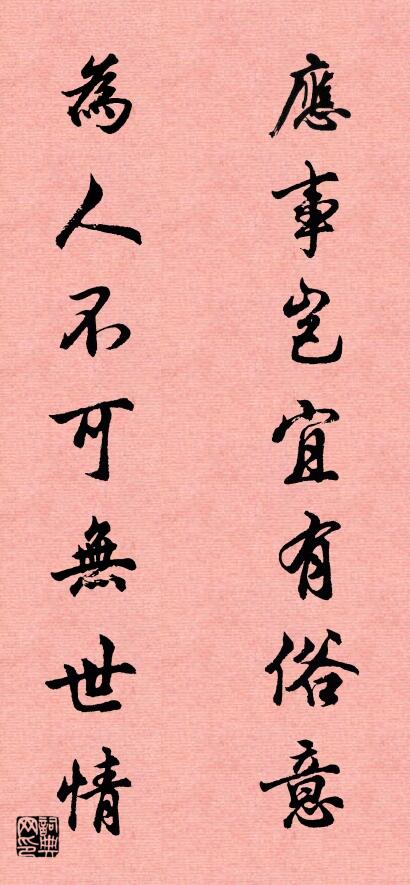 應事豈宜有俗意
為人不可無世情
詞典網印